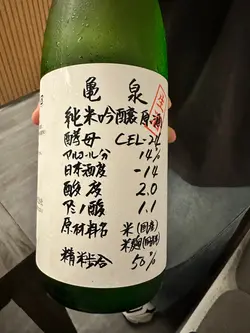 亀泉
純米吟醸原酒
生酒
酵母 CEL-24
アルコール分 14%
日本酒度 -14
酸度 2.0
アミノ酸 1.1
原材料名 米(国産)
米麹(国産米)
精米歩合 50%